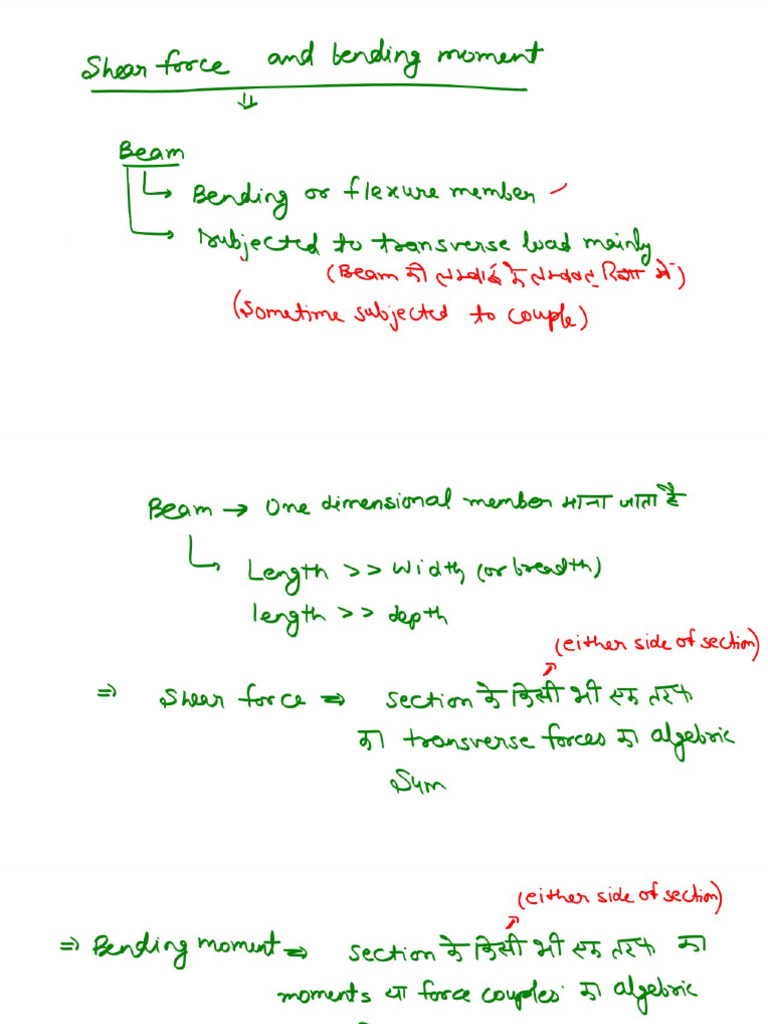 Shear force and bending moment
Beam
Bending or flexure member
Subjected to transverse load mainly
(Beam की लम्बाई के लम्बवत दिशा में)
(Sometime subjected to couple)
Beam → One dimensional member माना जाता है
Length >> Width (or breadth)
length >> depth
(either side of section)
⇒ Shear force ⇒ section के किसी भी एक तरफ
का transverse forces का algebric
Sum
(either side of section)
⇒ Bending moment ⇒ section के किसी भी एक तरफ का
moments या force couples का algebric